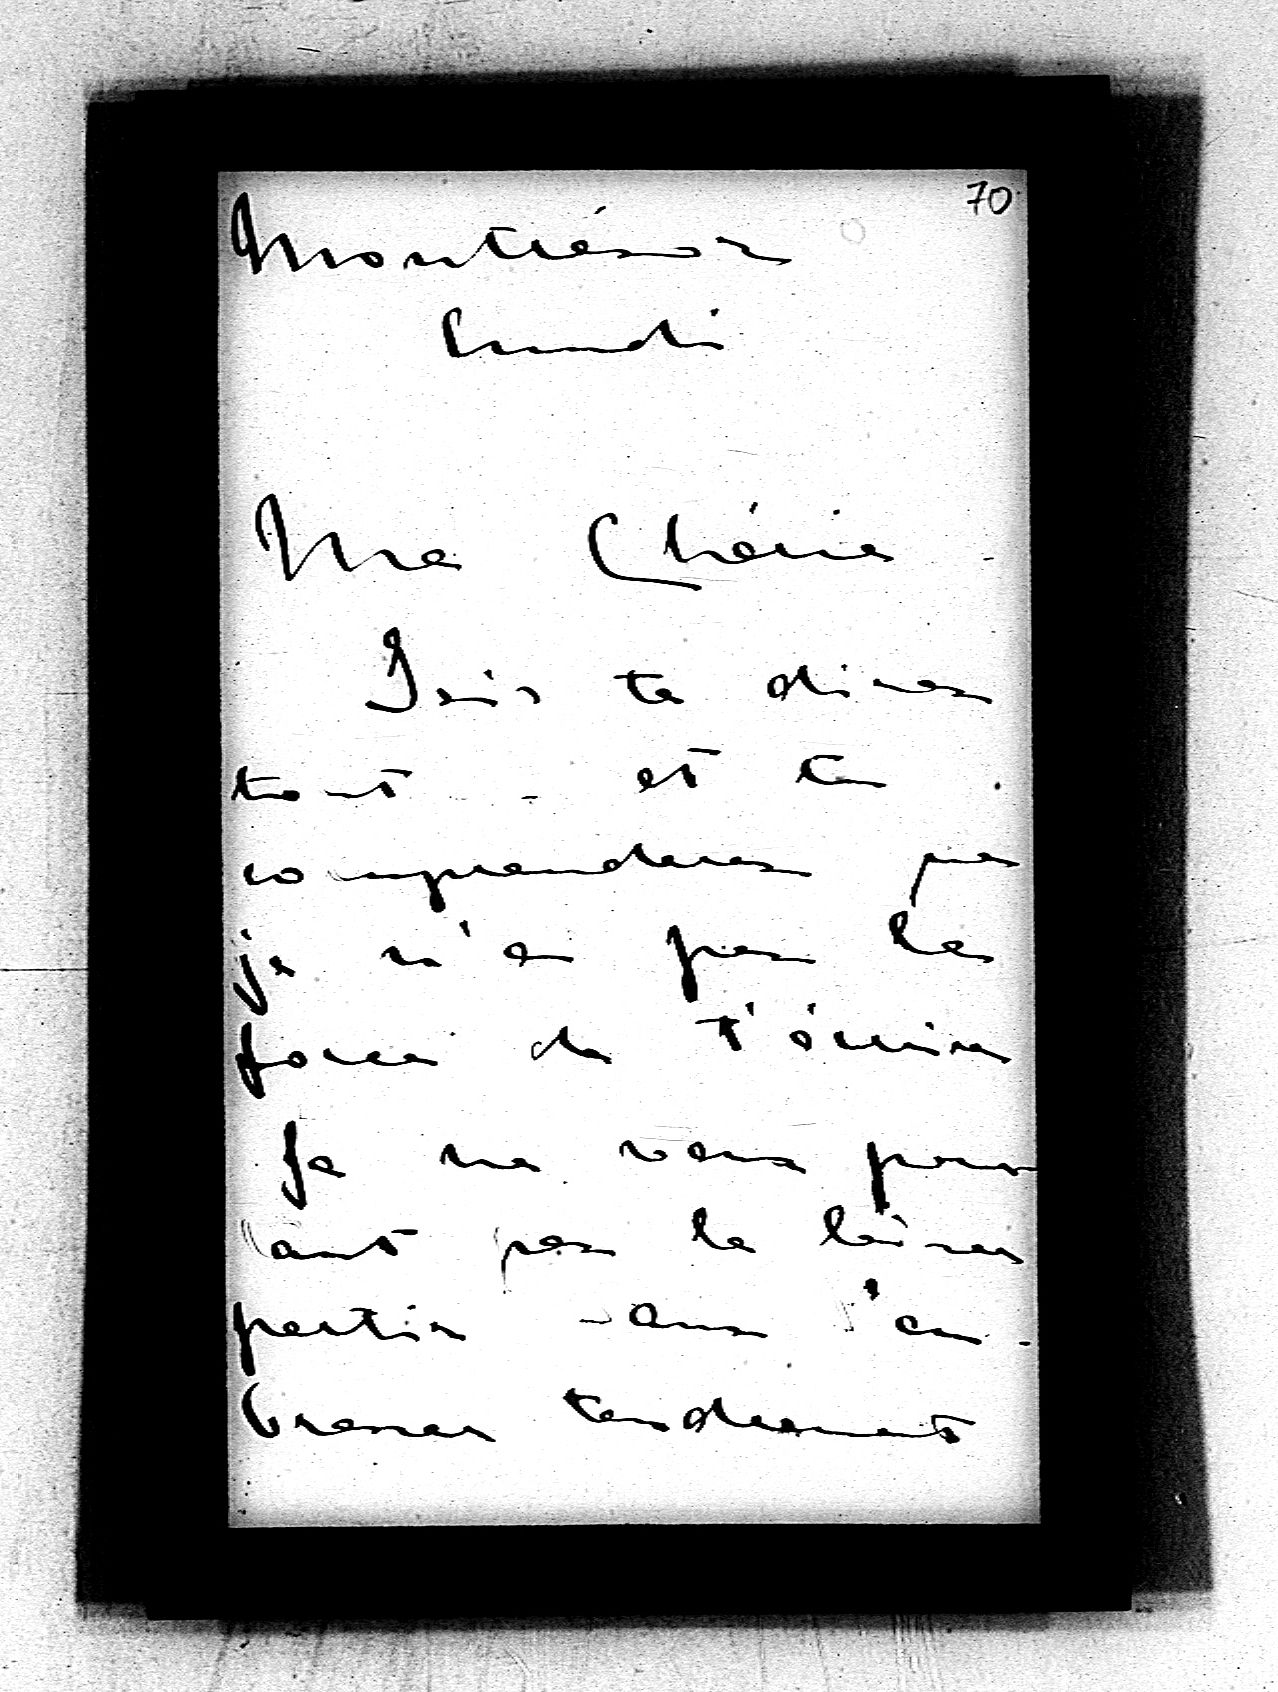 70
Montrésor
Lundi
Ma Chérie
Jais te dirai
tout - et tu
comprendras que
je n'ai pas la
force de t'écrire
Je ne veux pour
tant pas le laisser
partir sans t'em-
brasser tendrement